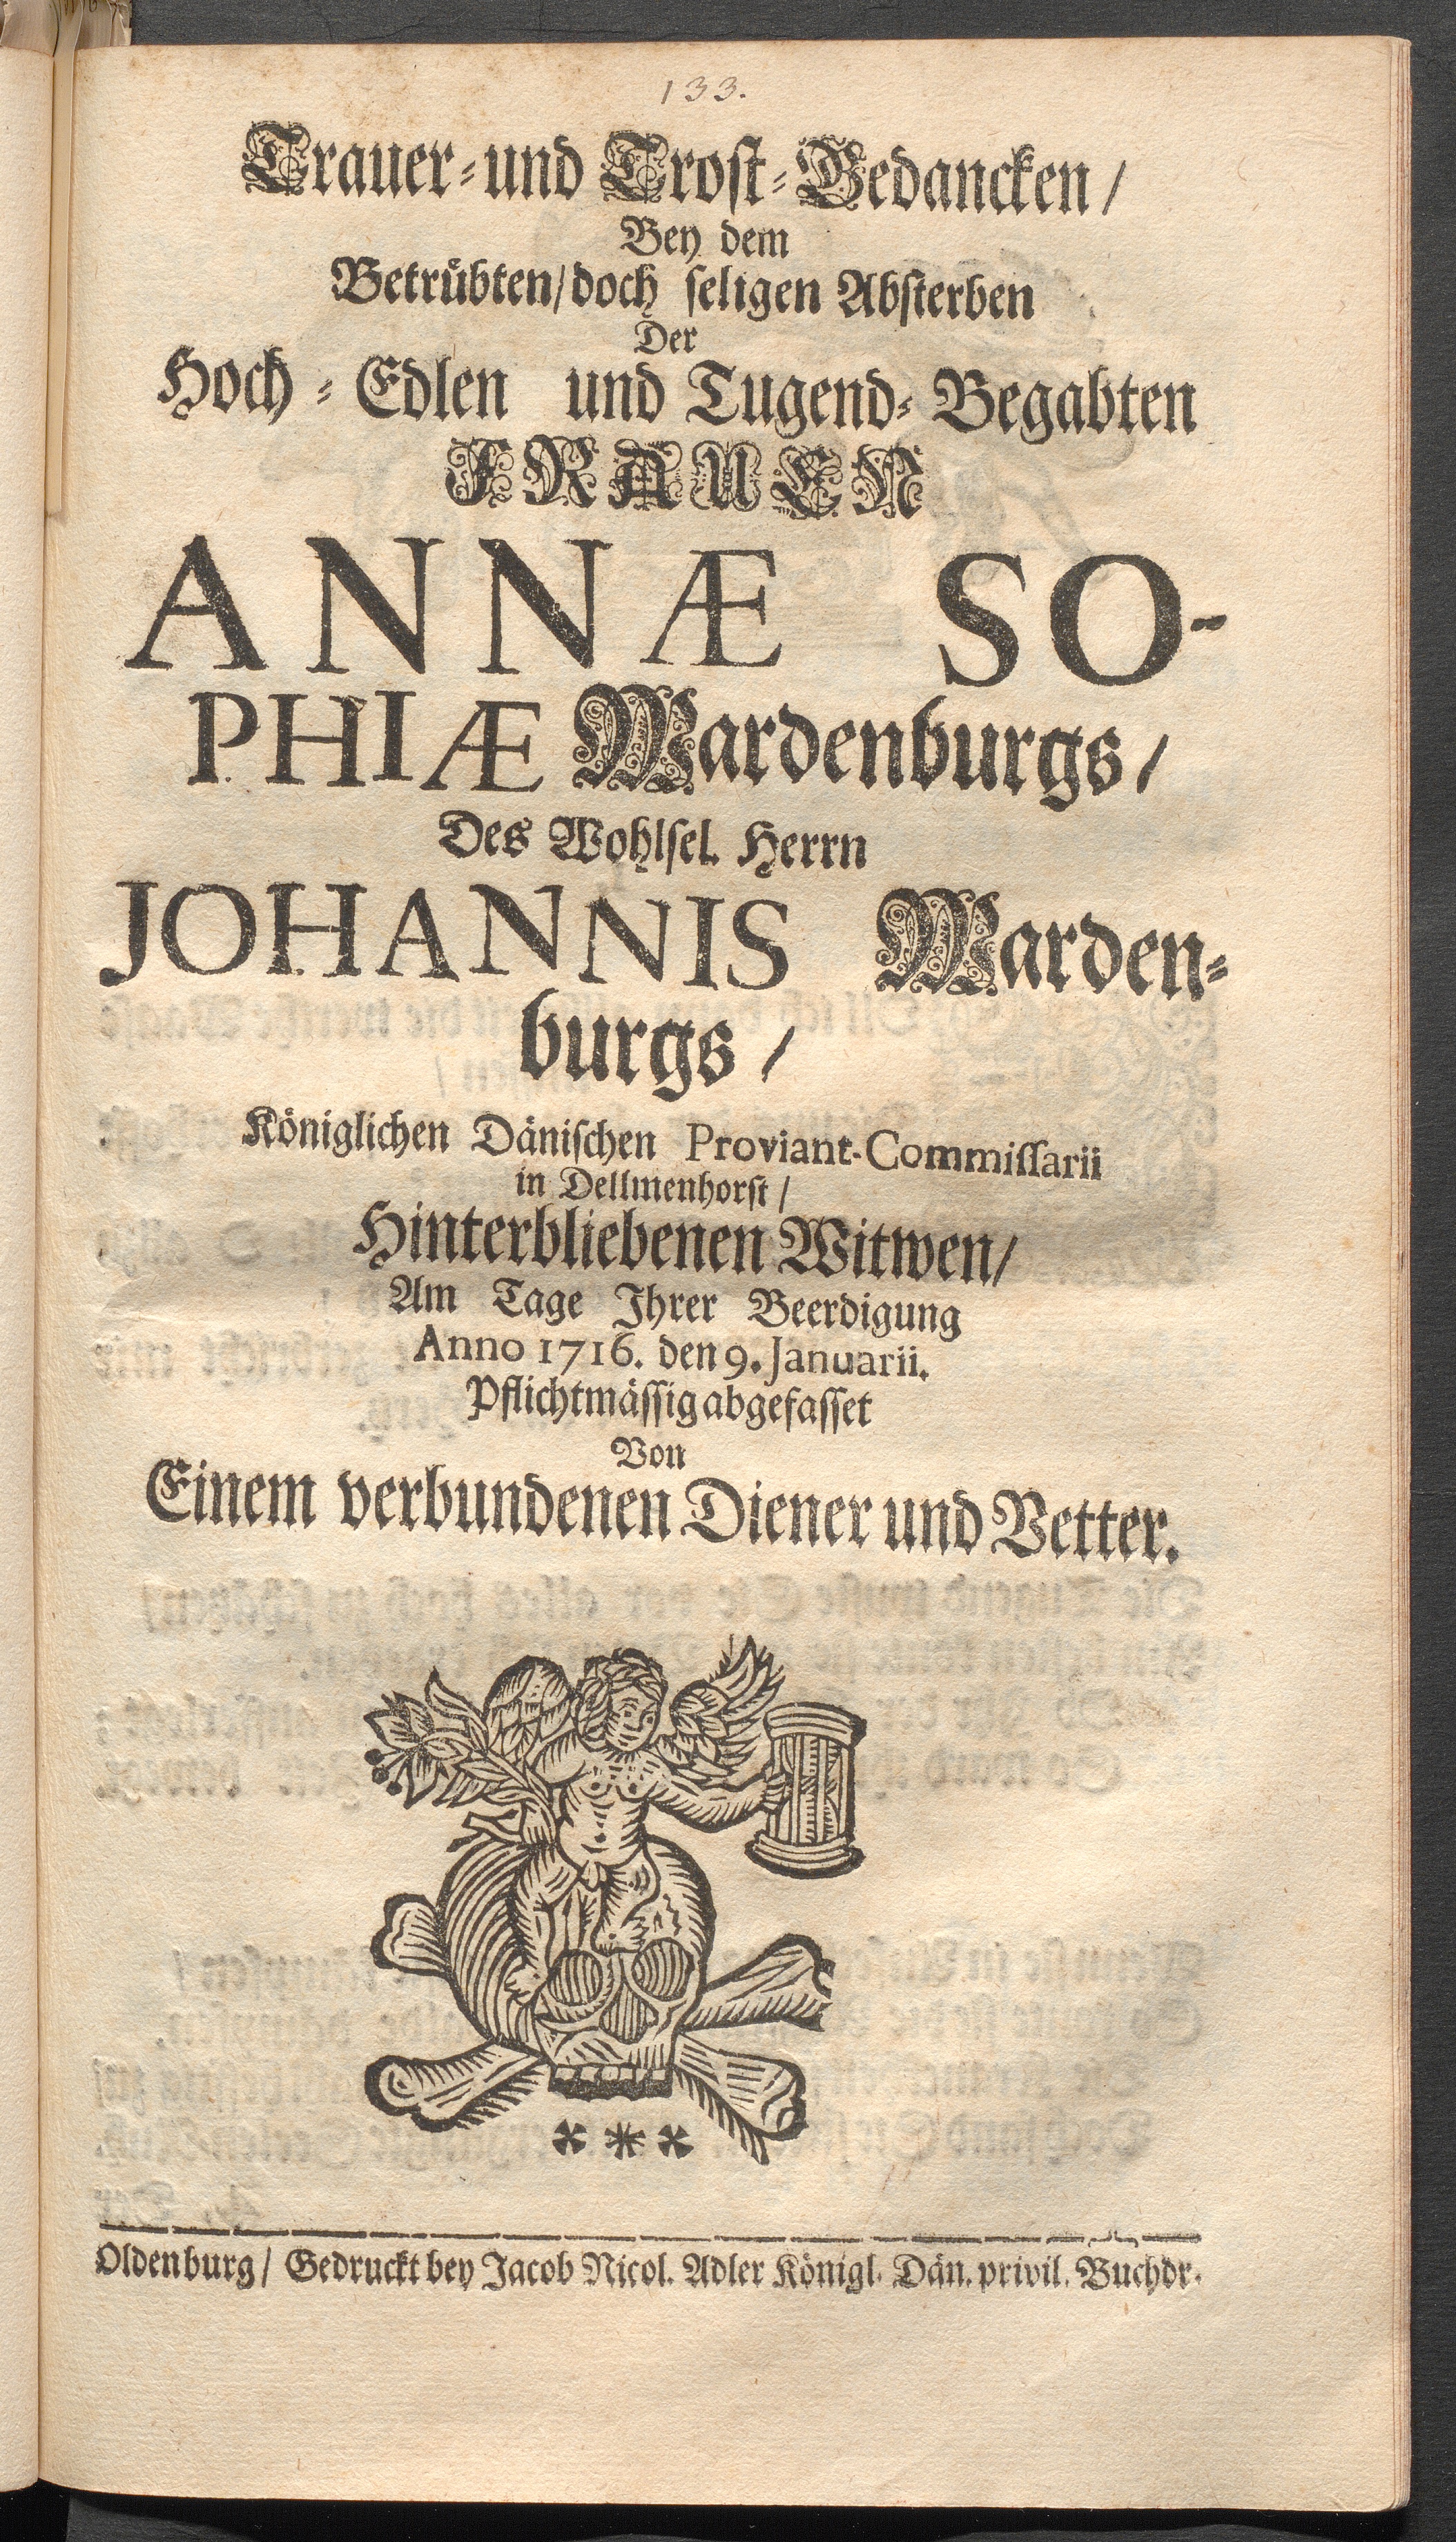 133.
Trauer-und Trost-Gedancken/
Bey dem
Betrübten/doch seligen Absterben
Der
Hoch-Edlen und Tugend-Begabten
FRAUEN
ANNÆ SO-
PHIÆ Wardenburgs/
Des Wohlsel. Herrn
JOHANNIS Warden-
burgs/
Königlichen Dänischen Proviant-Commissarii
in Dellmenhorst/
Hinterbliebenen Witwen/
Am Tage Ihrer Beerdigung
Anno 1716. den 9. Januarii.
Pflichtmässig abgefasset
Von
Einem verbundenen Diener und Vetter.
Oldenburg/ Gedruckt bey Jacob Nicol. Adler Königl. Dän. privil. Buchdr.